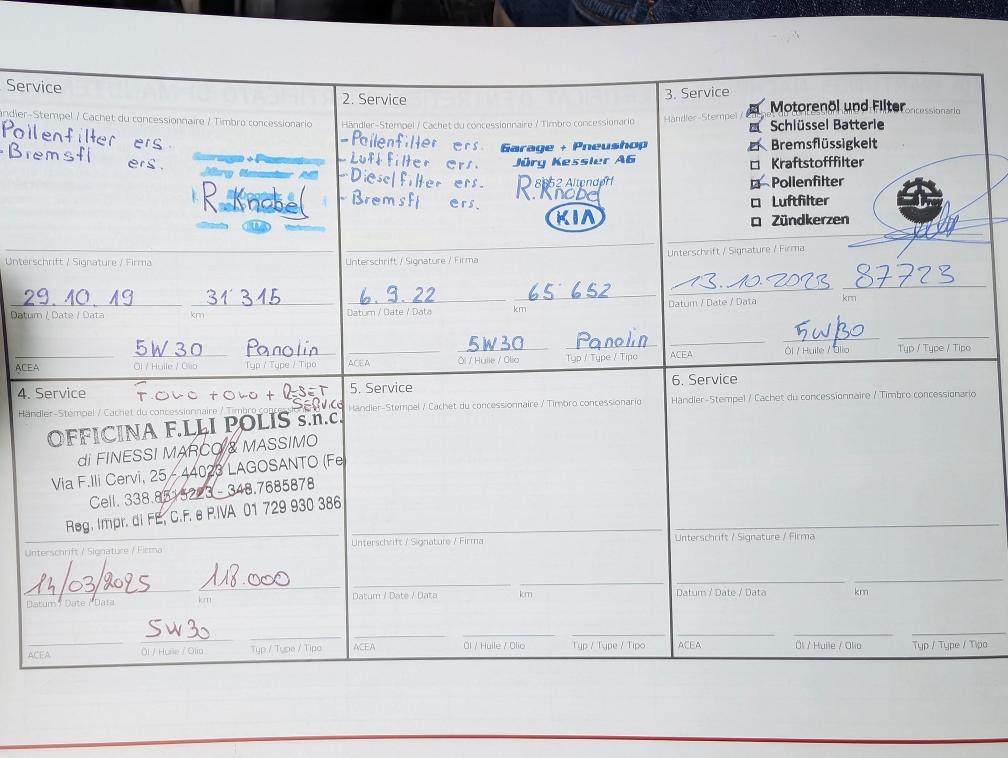 Service
Händler-Stempel / Cachet du concessionnaire / Timbro concessionario
Pollenfilter ers.
- Bremsfl ers.
Garage + Pneushop
Jürg Kessler AG
R. Knobel
Unterschrift / Signature / Firma
29.10.19 31'315
Datum / Date / Data km
5W30 Panolin
ACEA Öl / Huile / Olio Typ / Type / Tipo
2. Service
Händler-Stempel / Cachet du concessionnaire / Timbro concessionario
- Pollenfilter ers.
- Luftfilter ers.
- Dieselfilter ers.
- Bremsfl ers.
Garage + Pneushop
Jürg Kessler AG
8852 Altendorf
R. Knobel
KIA
Unterschrift / Signature / Firma
6.9.22 65'652
Datum / Date / Data km
5W30 Panolin
ACEA Öl / Huile / Olio Typ / Type / Tipo
3. Service
Händler-Stempel / concessionario
Motorenöl und Filter
Schlüssel Batterie
Bremsflüssigkeit
Kraftstofffilter
Pollenfilter
Luftfilter
Zündkerzen
Unterschrift / Signature / Firma
13.10.2023 87723
Datum / Date / Data km
5W/30
ACEA Öl / Huile / Olio Typ / Type / Tipo
4. Service
+ RESET
SERVICE
Händler-Stempel / Cachet du concessionnaire / Timbro
OFFICINA F.LLI POLIS s.n.c.
di FINESSI MARCO & MASSIMO
Via F.lli Cervi, 25 - 44023 LAGOSANTO (Fe
Cell. - 348.7685878
Reg. Impr. di FE, C.F. e P.IVA 01 729 930 386
Unterschrift / Signature / Firma
14/03/2025 118.000
Datum / Date / Data km
5W30
ACEA Öl / Huile / Olio Typ / Type / Tipo
5. Service
Händler-Stempel / Cachet du concessionnaire / Timbro concessionario
Unterschrift / Signature / Firma
Datum / Date / Data km
ACEA Öl / Huile / Olio Typ / Type / Tipo
6. Service
Händler-Stempel / Cachet du concessionnaire / Timbro concessionario
Unterschrift / Signature / Firma
Datum / Date / Data km
ACEA Öl / Huile / Olio Typ / Type / Tipo